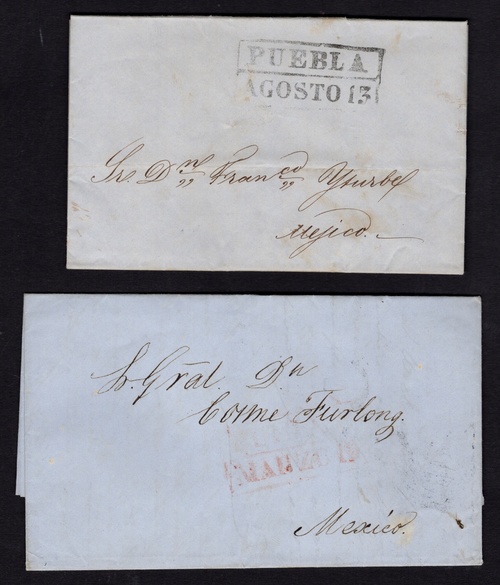 PUEBLA
AGOSTO 13
Sr Dn Franco Yturbe
Mejico.
Sr. Gral. Dn
Cosme Furlong.
MARZO
Mexico.